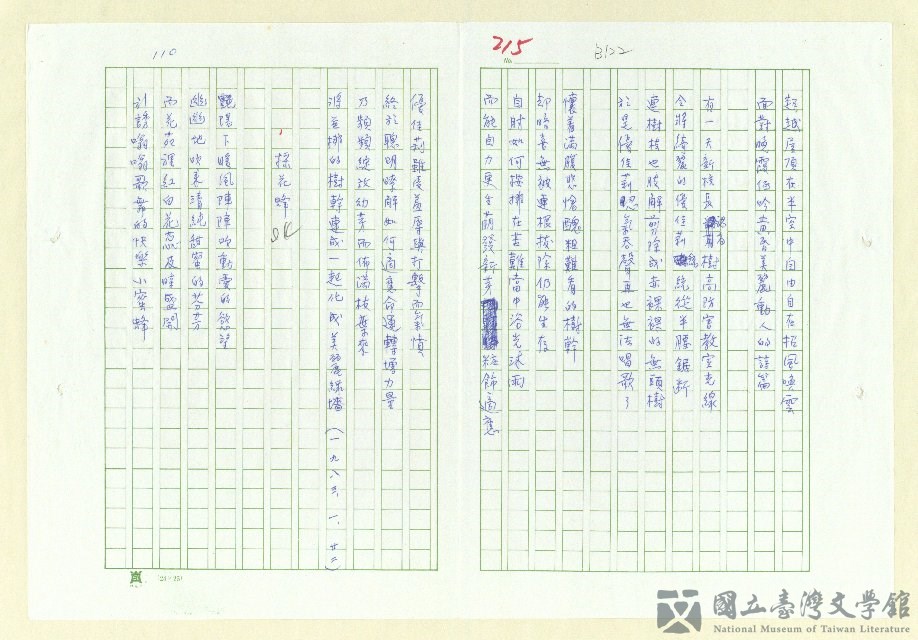 215
No.
B122
起越屋頂在半空中自由自在招風喚雲
面對晚霞低吟黃昏美麗動人的詩篇
有一天新校長認為樹高防害教室光線
令將綺麗的優佳莉統統從半腰鋸斷
連樹枝也肢解剪除成赤裸裸的無頭樹
於是優佳莉忍氣吞聲再也無法唱歌了
懷著滿腹悲愴醜粗難看的樹幹
卻暗喜無被連根拔除仍能生存
自肘如何按排在苦難當中浴光沐雨
而能自力更生萌發新芽粧飾適應
110
優佳莉雖受羞辱與打擊而氣憤
終於聰明瞭解如何適應命運轉增力量
乃頻頻綻放幼芽而佈滿枝葉來
將並挪的樹幹連成一起化成美麗綠墻(一九八三、一、廿二)
採花蜂 OK
艷陽下暖風陣陣吹動愛的慾望
幽幽地吹來清純甜蜜的芬芳
而花苑裡紅白花蕊及時盛開
引誘嗡嗡歌舞的快樂小蜜蜂
國立臺灣文學館
National Museum of Taiwan Literature